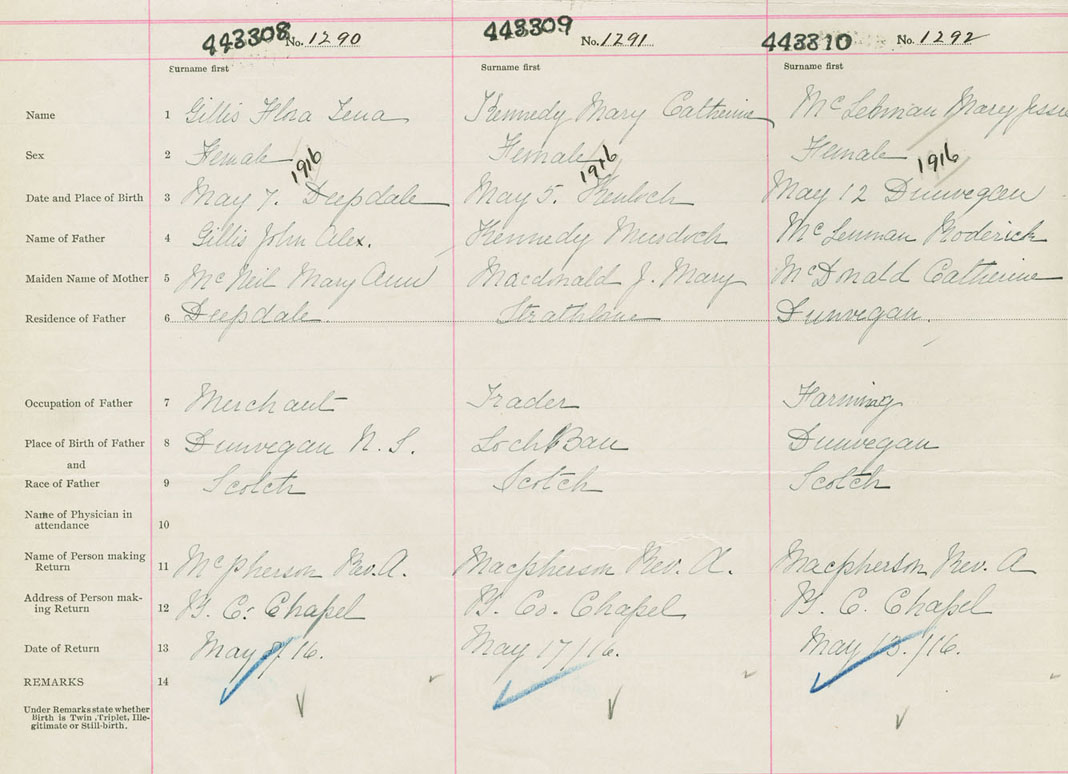 443308 No. 1290 443309 No. 1291 443310 No. 1292
Surname first Surname first Surname first
Name 1 Gillis Flora Lena Kennedy Mary Catherine McLennan Mary Jessie
Sex 2 Female Female Female
1916 1916 1916
Date and Place of Birth 3 May 7. Deepdale May 5. Kenloch May 12 Dunvegan
Name of Father 4 Gillis John Alex. Kennedy Murdoch McLennan Roderick
Maiden Name of Mother 5 McNeil Mary Ann Macdonald J. Mary McDonald Catherine
Residence of Father 6 Deepdale. Strathlorne Dunvegan.
Occupation of Father 7 Merchant Trader Farming
Place of Birth of Father 8 Dunvegan N. S. Loch Ban Dunvegan
and
Race of Father 9 Scotch Scotch Scotch
Name of Physician in
attendance 10
Name of Person making
Return 11 McPherson Rev. A. Macpherson Rev. A. Macpherson Rev. A
Address of Person mak-
ing Return 12 B. C. Chapel B. Co. Chapel B. C. Chapel
Date of Return 13 May 16. May 17/16. May 13./16.
REMARKS 14
Under Remarks state whether
Birth is Twin, Triplet, Ille-
gitimate or Still-birth.